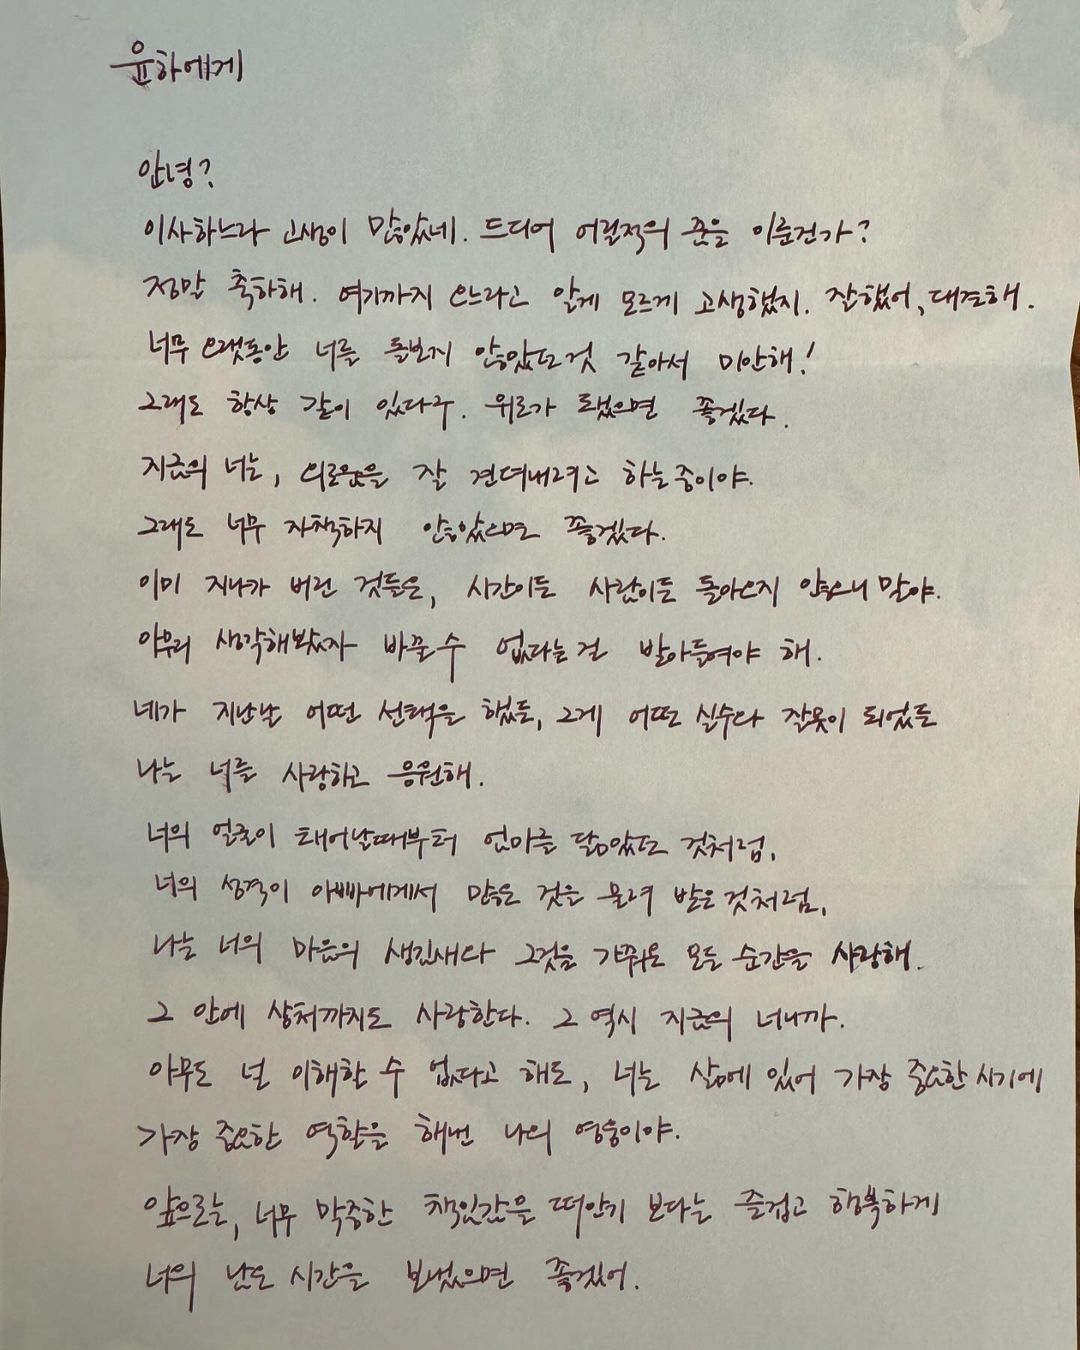 윤하에게
안녕?
이사하느라 고생이 많았네. 드디어 어릴적의 꿈을 이룬건가?
정말 축하해. 여기까지 오느라고 알게 모르게 고생했지. 잘했어, 대견해.
너무 오랫동안 너를 돌보지 않았던것 같아서 미안해!
그래도 항상 같이 있다구. 위로가 됐으면 좋겠다.
지금의 너는, 외로움을 잘 견뎌내려고 하는중이야.
그래도 너무 자책하지 않았으면 좋겠다.
이미 지나가 버린 것들은, 시간이든 사람이든 돌아오지 않으니 말야.
아무리 생각해봤자 바꿀수 없다는걸 받아들여야 해.
네가 지난날 어떤 선택을 했든, 그게 어떤 실수나 잘못이 되었든
나는 너를 사랑하고 응원해.
너의 얼굴이 태어날때부터 엄마를 닮았던 것처럼,
너의 성격이 아빠에게서 많은 것을 물려 받은것처럼,
나는 너의 마음의 생김새와 그것을 가꿔온 모든 순간을 사랑해.
그 안에 상처까지도 사랑한다. 그 역시 지금의 너니까.
아무도 널 이해할 수 없다고 해도, 너는 삶에 있어 가장 중요한 시기에
가장 중요한 역할을 해낸 나의 영웅이야.
앞으로는, 너무 막중한 책임감을 떠안기 보다는 즐겁고 행복하게
너의 남은 시간을 보냈으면 좋겠어.